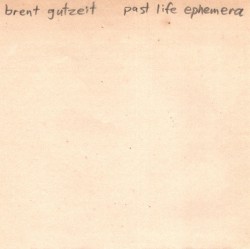 brent gutzeit past life ephemera